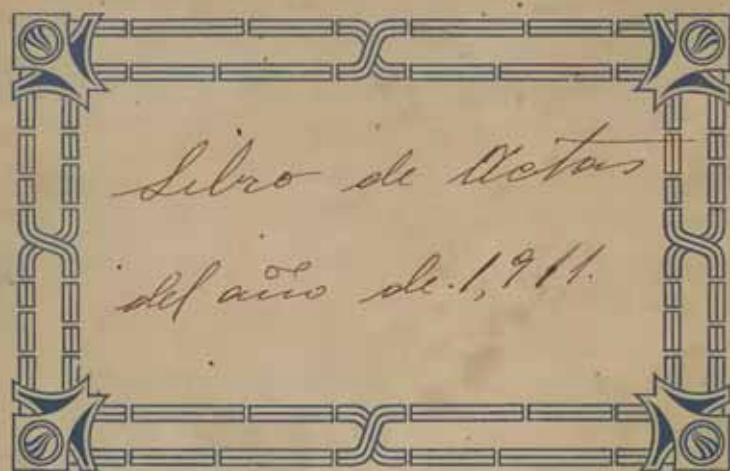 Libro de Actas
del año de. 1,911.